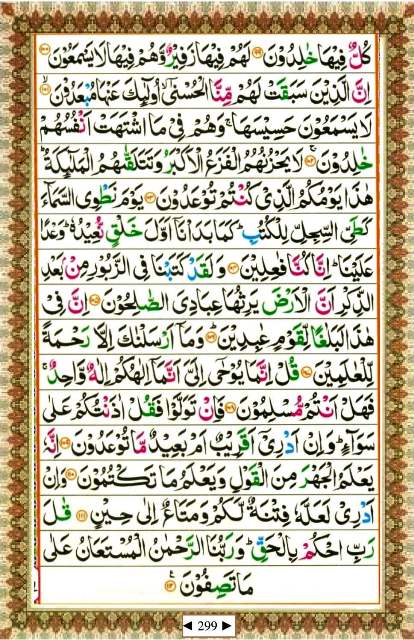 كُلٌّ فِيْهَا خٰلِدُوْنَ ﴿۹۹﴾ لَهُمْ فِيْهَا زَفِيْرٌ وَّهُمْ فِيْهَا لَا يَسْمَعُوْنَ ﴿۱۰۰﴾
اِنَّ الَّذِيْنَ سَبَقَتْ لَهُمْ مِّنَّا الْحُسْنٰٓى ۙ اُولٰٓئِكَ عَنْهَا مُبْعَدُوْنَ ﴿۱۰۱﴾
لَا يَسْمَعُوْنَ حَسِيْسَهَا ۚ وَهُمْ فِيْ مَا اشْتَهَتْ اَنْفُسُهُمْ
خٰلِدُوْنَ ﴿۱۰۲﴾ لَا يَحْزُنُهُمُ الْفَزَعُ الْاَكْبَرُ وَتَتَلَقّٰىهُمُ الْمَلٰٓئِكَةُ ؕ
هٰذَا يَوْمُكُمُ الَّذِيْ كُنْتُمْ تُوْعَدُوْنَ ﴿۱۰۳﴾ يَوْمَ نَطْوِي السَّمَآءَ
كَطَيِّ السِّجِلِّ لِلْكُتُبِ ؕ كَمَا بَدَاْنَاۤ اَوَّلَ خَلْقٍ نُّعِيْدُهٗ ؕ وَعْدًا
عَلَيْنَا ؕ اِنَّا كُنَّا فٰعِلِيْنَ ﴿۱۰۴﴾ وَلَقَدْ كَتَبْنَا فِي الزَّبُوْرِ مِنْۢ بَعْدِ
الذِّكْرِ اَنَّ الْاَرْضَ يَرِثُهَا عِبَادِيَ الصّٰلِحُوْنَ ﴿۱۰۵﴾ اِنَّ فِيْ
هٰذَا لَبَلٰغًا لِّقَوْمٍ عٰبِدِيْنَ ﴿۱۰۶﴾ وَمَاۤ اَرْسَلْنٰكَ اِلَّا رَحْمَةً
لِّلْعٰلَمِيْنَ ﴿۱۰۷﴾ قُلْ اِنَّمَا يُوْحٰۤى اِلَيَّ اَنَّمَاۤ اِلٰهُكُمْ اِلٰهٌ وَّاحِدٌ ۚ
فَهَلْ اَنْتُمْ مُّسْلِمُوْنَ ﴿۱۰۸﴾ فَاِنْ تَوَلَّوْا فَقُلْ اٰذَنْتُكُمْ عَلٰى
سَوَآءٍ ؕ وَاِنْ اَدْرِيْۤ اَقَرِيْبٌ اَمْ بَعِيْدٌ مَّا تُوْعَدُوْنَ ﴿۱۰۹﴾ اِنَّهٗ
يَعْلَمُ الْجَهْرَ مِنَ الْقَوْلِ وَيَعْلَمُ مَا تَكْتُمُوْنَ ﴿۱۱۰﴾ وَاِنْ
اَدْرِيْ لَعَلَّهٗ فِتْنَةٌ لَّكُمْ وَمَتَاعٌ اِلٰى حِيْنٍ ﴿۱۱۱﴾ قٰلَ
رَبِّ احْكُمْ بِالْحَقِّ ؕ وَرَبُّنَا الرَّحْمٰنُ الْمُسْتَعَانُ عَلٰى
مَا تَصِفُوْنَ ﴿۱۱۲﴾
◄ 299 ►